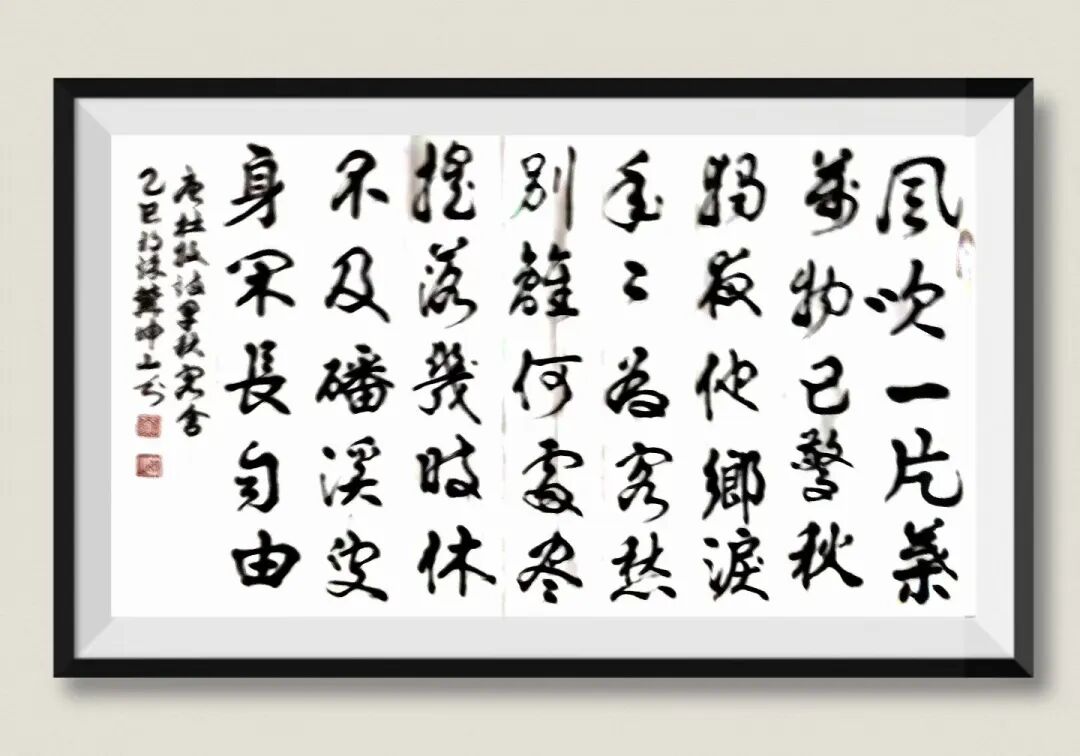 風吹一片葉
萬物已驚秋
獨夜他鄉淚
年〻為客愁
別離何處尽
搖落幾時休
不及磻溪叟
身閑長自由
唐杜牧詩早秋客舍
乙巳坤山书